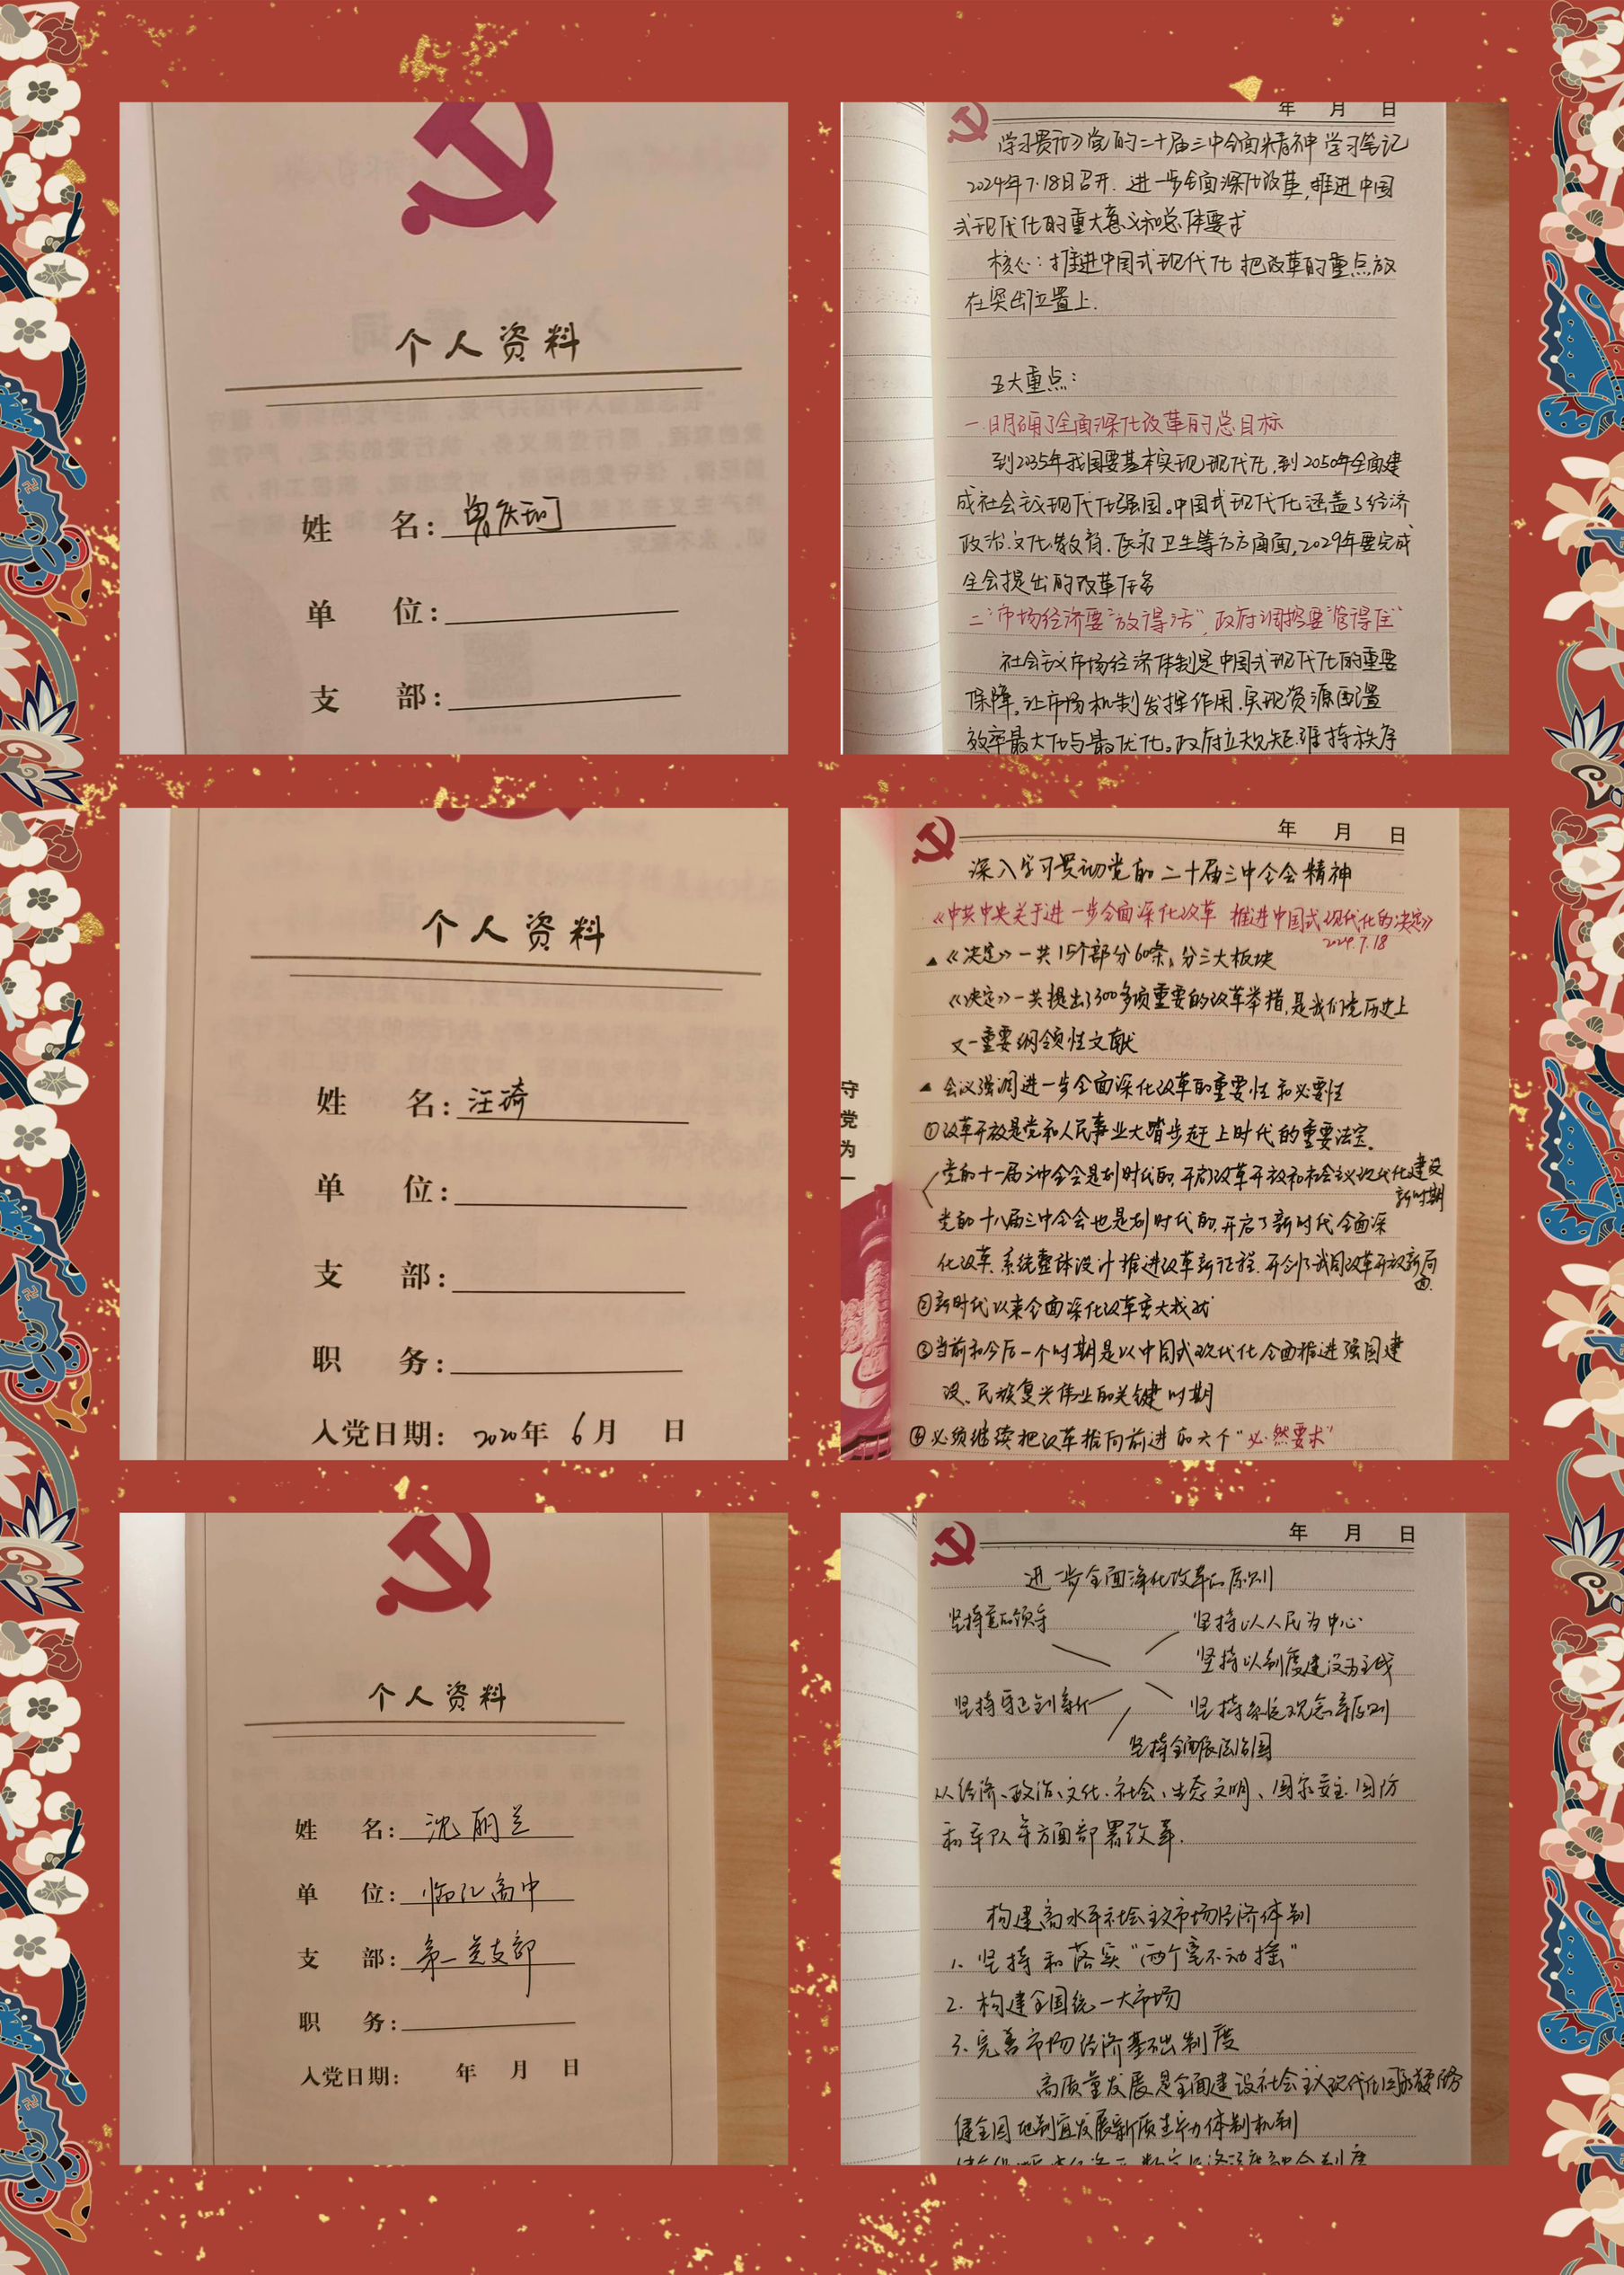 个人资料
姓 名：曾庆珂
单 位：
支 部：
年 月 日
学习贯彻党的二十届三中全面精神 学习笔记
2024年7.18日召开. 进一步全面深化改革,推进中国
式现代化的重大意义和总体要求
核心：推进中国式现代化 把改革的重点放
在突出位置上.
五大重点：
一.明确了全面深化改革的总目标
到2035年我国要基本实现现代化,到2050年全面建
成社会主义现代化强国。中国式现代化涵盖了经济
政治.文化.教育.医疗卫生等方方面面,2029年要完成
全会提出的改革任务
二.市场经济要“放得活”,政府调控要“管得住”
社会主义市场经济体制是中国式现代化的重要
保障,让市场机制发挥作用.实现资源配置
效率最大化与最优化。政府立规矩.维持秩序
个人资料
姓 名：汪琦
单 位：
支 部：
职 务：
入党日期： 2020年 6月 日
年 月 日
深入学习贯彻党的二十届三中全会精神
《中共中央关于进一步全面深化改革 推进中国式现代化的决定》
2024.7.18
▲《决定》一共15个部分60条,分三大板块
《决定》一共提出了300多项重要的改革举措,是我们党历史上
又一重要纲领性文献
▲ 会议强调进一步全面深化改革的重要性和必要性
①改革开放是党和人民事业大踏步赶上时代的重要法宝.
党的十一届三中全会是划时代的,开启改革开放和社会主义现代化建设
新时期
党的十八届三中全会也是划时代的,开启了新时代全面深
化改革、系统整体设计推进改革新征程.开创了我国改革开放新局
面.
②新时代以来全面深化改革重大成就
③当前和今后一个时期是以中国式现代化全面推进强国建
设、民族复兴伟业的关键时期
④必须继续把改革推向前进的六个“必然要求”
守
党
为
一
个人资料
姓 名：沈丽兰
单 位：临江高中
支 部：第一党支部
职 务：
入党日期： 年 月 日
年 月 日
进一步全面深化改革的原则
坚持党的领导
坚持以人民为中心
坚持以制度建设为主线
坚持守正创新
坚持系统观念等原则
坚持全面依法治国
从经济、政治、文化、社会、生态文明、国家安全.国防
和军队等方面部署改革.
构建高水平社会主义市场经济体制
1. 坚持和落实“两个毫不动摇”
2. 构建全国统一大市场
3. 完善市场经济基础制度
高质量发展是全面建设社会主义现代化国家的首要任务
健全因地制宜发展新质生产力体制机制